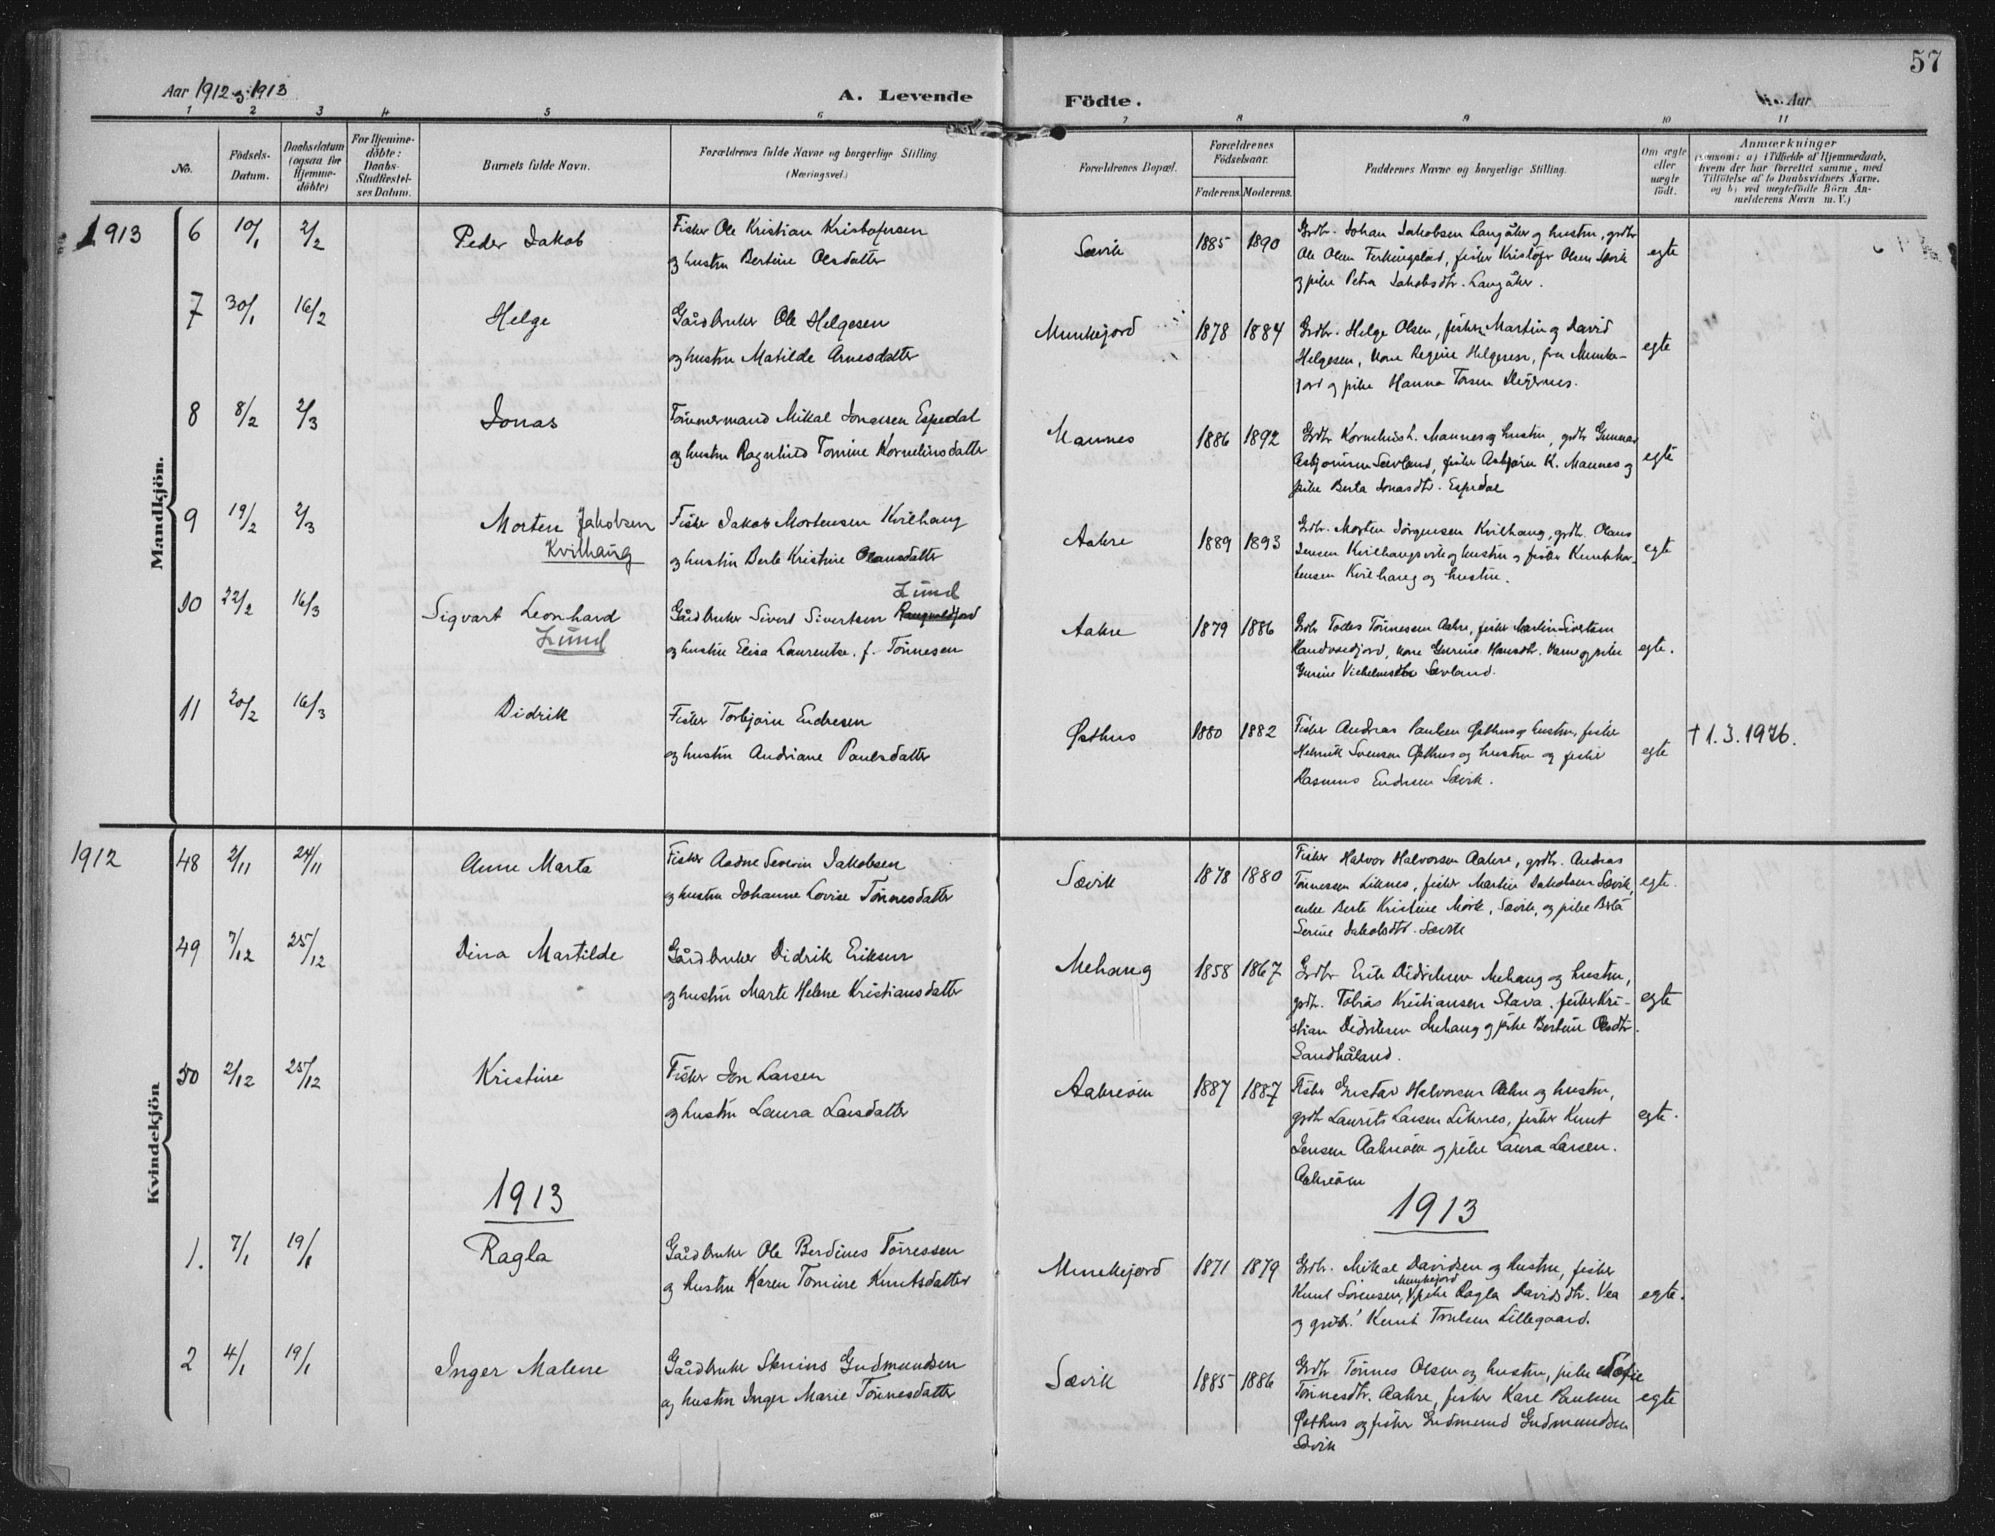 57
Aar 1912 og 1913
A. Levende
Födte.
Aar
1 2 3 4 5 6 7 8 9 10 11
No.
Födsels-
Datum.
Daabsdatum
(ogsaa for
Hjemme-
döbte)
For Hjemme-
döbte:
Daabs-
Stadfæstel-
ses Datum.
Barnets fulde Navn.
Forældrenes fulde Navne og borgerlige Stilling
(Næringsvei.)
Forældrenes Bopæl.
Forældrenes
Födselsaar.
Faderens. Moderens.
Faddernes Navne og borgerlige Stilling.
Om ægte
eller
uægte
født.
Anmærkninger
(saasom: a) i Tilfælde af Hjemmedaab,
hvem der har forrettet samme, med
Tilföielse af to Daabsvidners Navne.
og b) ved uægtefödte Börn An-
melderens Navn m. V.)
Mandkjön.
1913
6 10/1 2/2 Peder Jakob
Fisker Ole Kristian Kristofersen
og hustru Bertine Olsdatter
Sævik 1885 1890
Grdbr. Johan Jakobsen Langåker og hustru, grdbr
Ole Olsen Ferkingstad, fisker Kristofer Olsen Sævik
og pike Petra Jakobsdtr. Langåker.
egte
7 30/1 16/2 Helge
Gårdbruker Ole Helgesen
og hustru Matilde Arnesdatter
Munkejord 1878 1884
Grdbr. Helge Olsen, fisker Martin og David
Helgesen, kone Regine Helgesen, fra Munke-
jord og pike Hanna
egte
8 8/2 2/3 Jonas
Tömmermand Mikal Jonassen Espedal
og hustru Ragnhild Tomine Korneliusdatter
Mannes 1886 1892
Grdbr Kornelius L. Mannes og hustru, grdbr Gunnar
Asbjörnsen Sævland, fisker Asbjörn K. Mannes og
pike Berta Jonasdtr. Espedal
egte
9 19/2 2/3 Morten Jakobsen
Kvilhaug
Fisker Jakob Mortensen Kvilhaug
og hustru Berte Kristine Olausdatter
Aakre 1889 1893
Grdbr. Morten Jörgensen Kvilhaug, grdbr. Olaus
Jensen Kvilhaugsvik og hustru og fisker Knut
Kvilhaug og hustru.
egte
10 22/2 16/3 Sigvart Leonhard
Lund
Lund
Gårdbruker Sivert Sivertsen
og hustru Elisa Laurentse. f. Tönnesen
Aakre 1879 1886
Grdbr Tades Tönnesen Aakre, fisker Martin Sivertsen
kone Gurine Hansdtr. og pike
Gurine Vilhelmsdtr Sævland.
egte.
11 20/2 16/3 Didrik
Fisker Torbjörn Endresen
og hustru Andriane Paulsdatter
Østhus 1880 1882
Fisker Andreas Paulsen Østhus og hustru, fisker
Henrik Svensen Østhus og hustru og fisker
Rasmus Endresen Sævik.
egte
† 1.3.1976.
Kvindekjön
1912
48 2/11 24/11 Anne Marta
Fisker Aadne Severin Jakobsen
og hustru Johanne Lovise Tönnesdatter
Sævik 1878 1880
Fisker Halvor Halvorsen Aakre, grdbr. Andreas
Tönnessen Liknes, fisker Martin Jakobsen Sævik,
enke Berte Kristine Mörk, Sævik, og pike Berta
Serine Jakobsdtr. Sævik
egte.
49 7/12 25/12 Dina Martilde
Gårdbruker Didrik Eriksen
og hustru Marte Helene Kristiansdatter
Mehaug 1858 1867
Grdbr Erik Didriksen Mehaug og hustru,
grdbr. Tobias Kristiansen Stava, fisker Kri-
stian Didriksen Mehaug og pike Bertine Olsdtr.
Sandhåland.
egte
50 2/12 25/12 Kristine
Fisker Jon Larsen
og hustru Laura Larsdatter
Aakreöen 1887 1887
Fisker Gustav Halvorsen Aakre og hustru,
grdbr Laurits Larsen Liknes, fisker Knut
Jensen Aakreöen og pike Laura Larsen.
Aakreöen
egte.
1913
1913
1. 7/1 19/1 Ragla
Gårdbruker Ole Berdines Törressen
og hustru Karen Tomine Knutsdatter
Munkejord 1871 1879
Grdbr. Mikal Davidsen og hustru, fisker
Munkejord
Knut Sörensen, pike Ragla Davidsdtr. Vea
og grdbr. Knut Troelsen Lillegaard.
egte.
2 4/1 19/1 Inger Malene
Gårdbruker Gudmundsen
og hustru Inger Marie Tönnesdatter
Sævik 1885 1886
Grdbr Tönnes Olsen og hustru, pike Sofie
Tönnesdtr. Aakre, fisker Kare Paulsen
Østhus og fisker Gudmund Gudmundsen
Sævik
egte